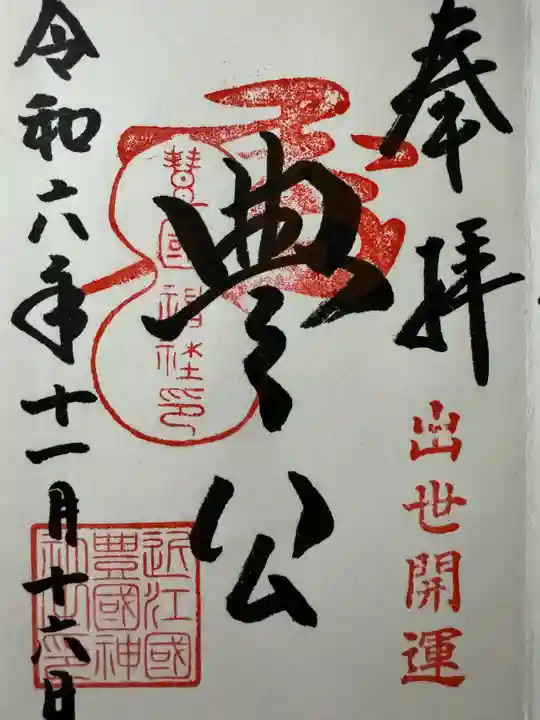 奉拝
出世開運
豊公
豊國神社印
令和六年十一月十六日
近江國
豊國神
社之印